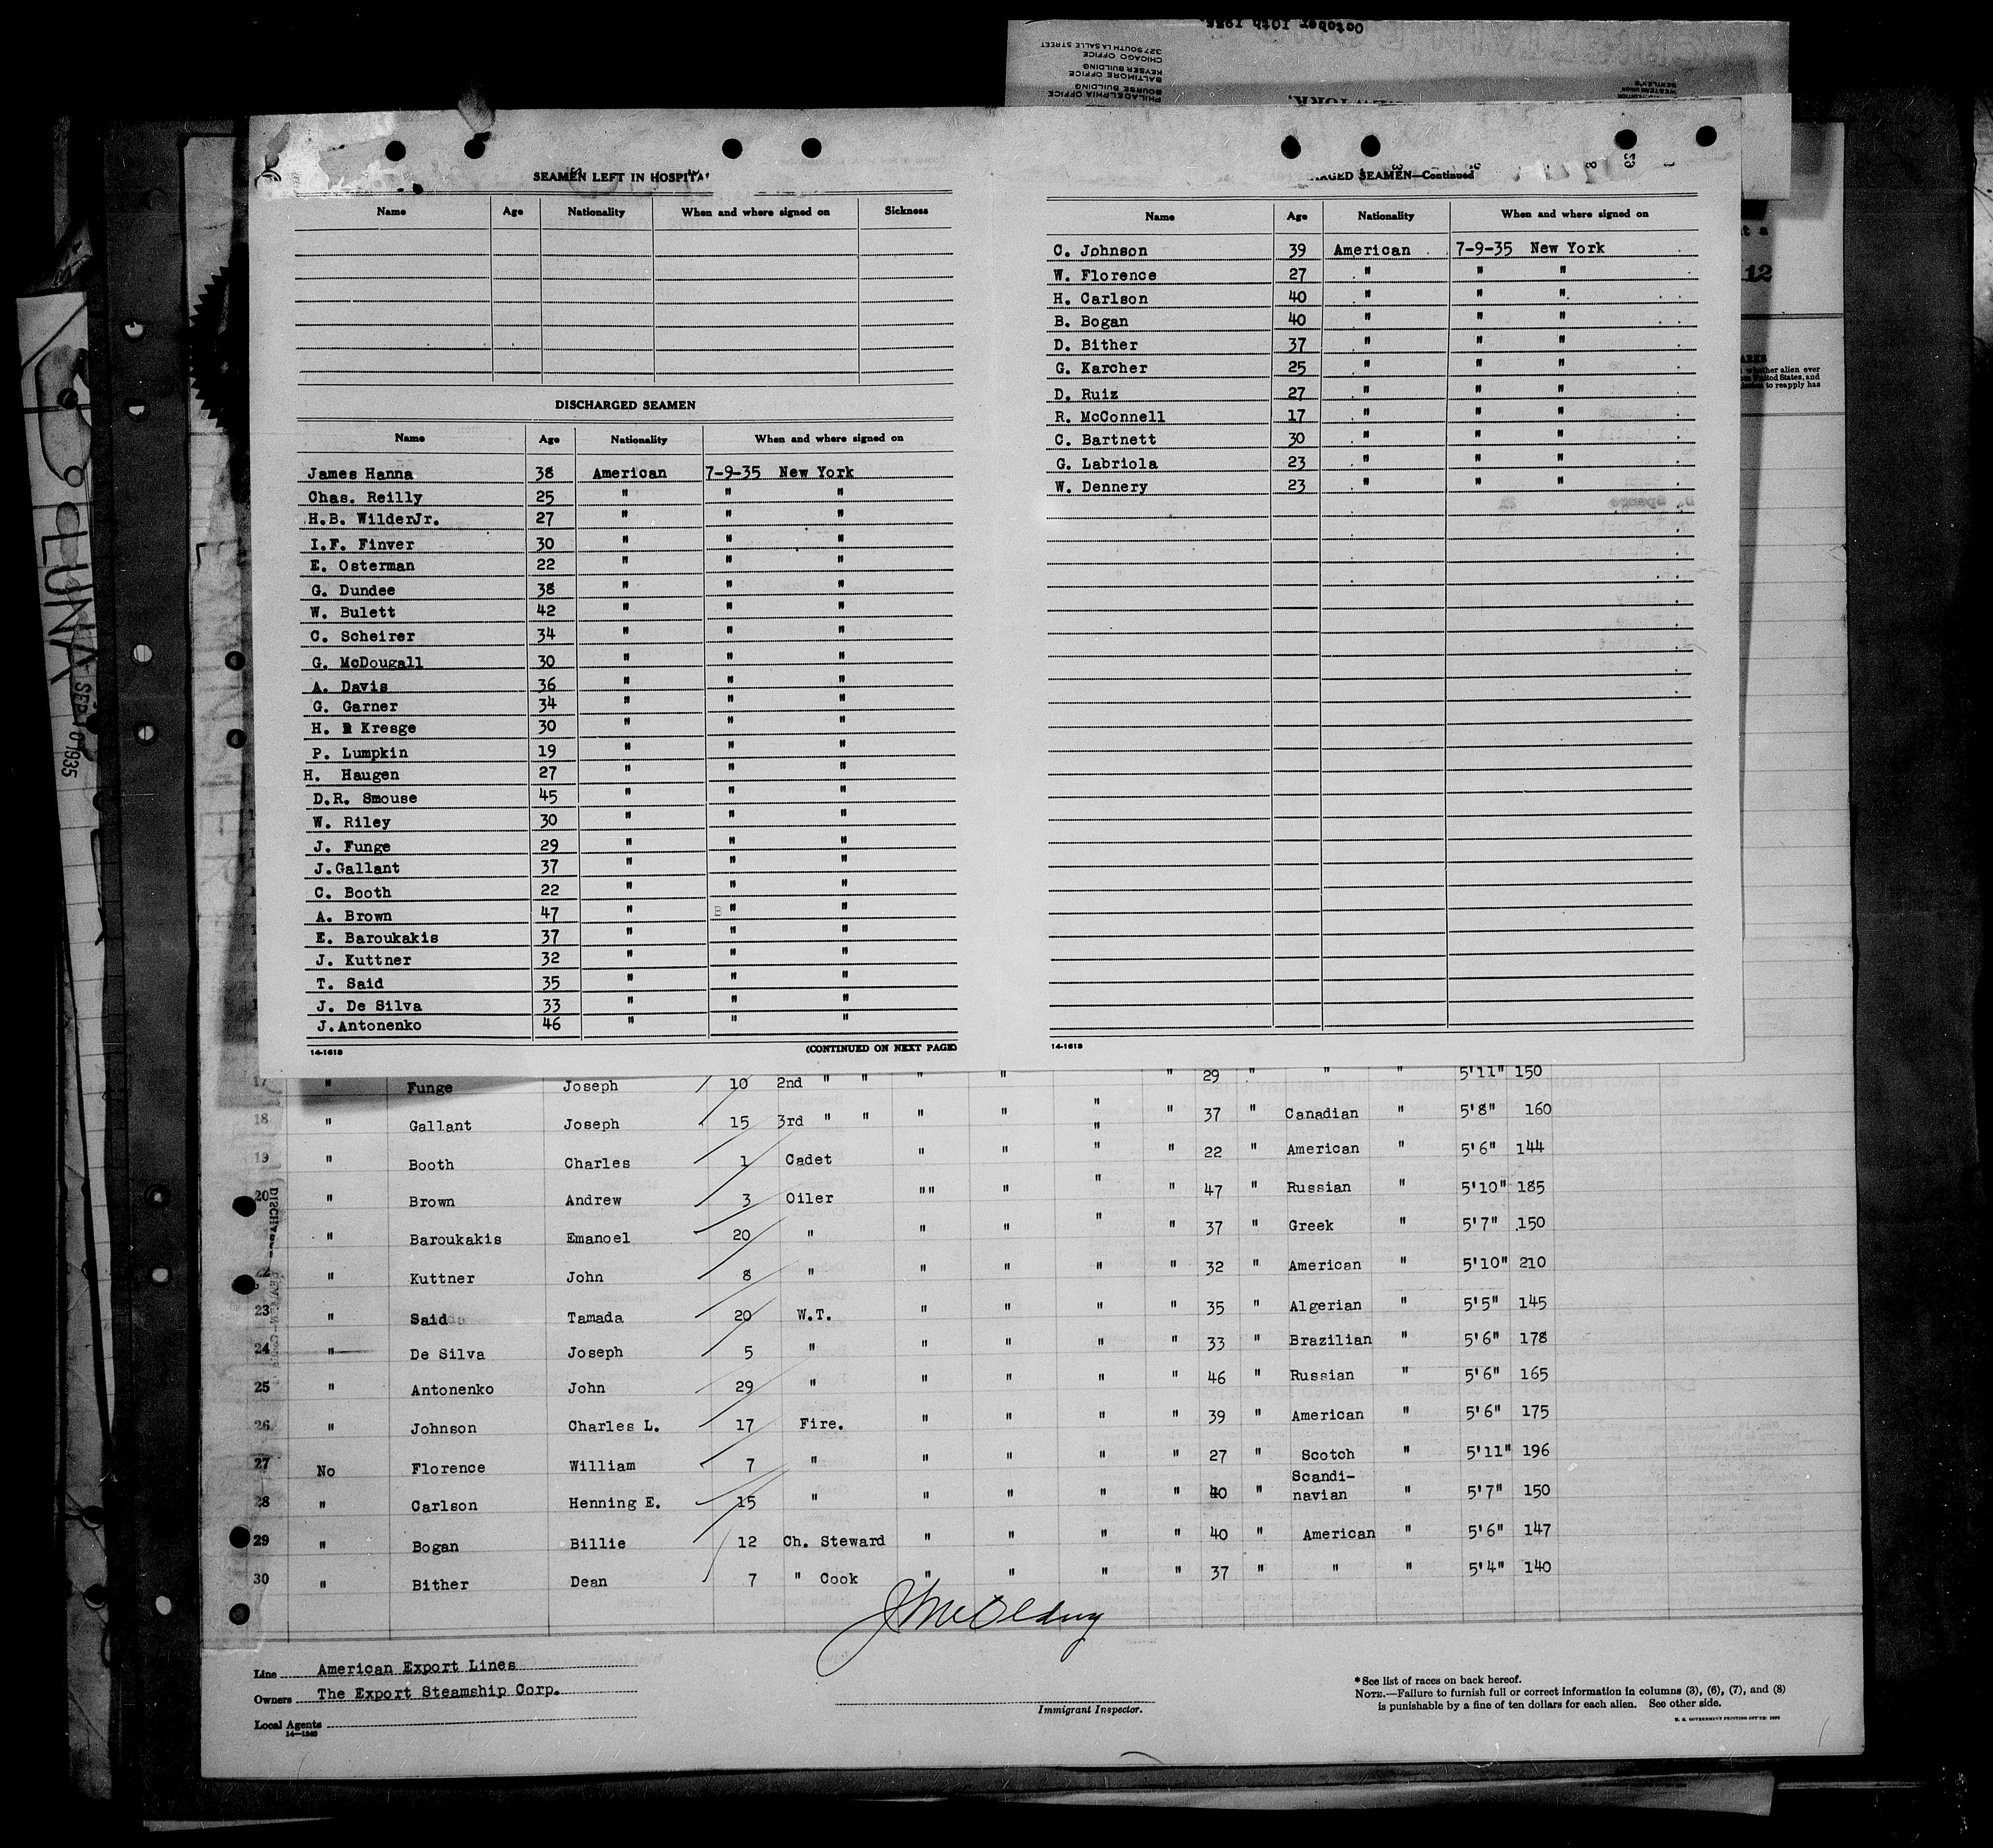 October 10th 1935.
327 SOUTH LA SALLE STREET
CHICAGO OFFICE
KEYSER BUILDING
BALTIMORE OFFICE
BOURSE BUILDING
PHILADELPHIA OFFICE
WESTERN UNION
BENTLEY'S
LUNA
SEP 10 1935
SEAMEN LEFT IN HOSPITA
Name Age Nationality When and where signed on Sickness
DISCHARGED SEAMEN
Name Age Nationality When and where signed on
James Hanna 38 American 7-9-35 New York
Chas. Reilly 25 " " "
H.B. WilderJr. 27 " " "
I.F. Finver 30 " " "
E. Osterman 22 " " "
G. Dundee 38 " " "
W. Bulett 42 " " "
C. Scheirer 34 " " "
G. McDougall 30 " " "
A. Davis 36 " " "
G. Garner 34 " " "
H. R Kresge 30 " " "
P. Lumpkin 19 " " "
H. Haugen 27 " " "
D.R. Smouse 45 " " "
W. Riley 30 " " "
J. Funge 29 " " "
J.Gallant 37 " " "
C. Booth 22 " " "
A. Brown 47 " B " "
E. Baroukakis 37 " " "
J. Kuttner 32 " " "
T. Said 35 " " "
J. De Silva 33 " " "
J.Antonenko 46 " " "
14-1613 (CONTINUED ON NEXT PAGE)
ARGED SEAMEN—Continued
Name Age Nationality When and where signed on
C. Johnson 39 American 7-9-35 New York
W. Florence 27 " " "
H. Carlson 40 " " "
B. Bogan 40 " " "
D. Bither 37 " " "
G. Karcher 25 " " "
D. Ruiz 27 " " "
R. McConnell 17 " " "
C. Bartnett 30 " " "
G. Labriola 23 " " "
W. Dennery 23 " " "
14-1613
t a
12
ARKS
whether alien ever
United States, and
to reapply has
17 " Funge Joseph 10 2nd " " " " " 29 " " " 5'11" 150
18 " Gallant Joseph 15 3rd " " " " " " 37 " Canadian " 5'8" 160
19 " Booth Charles 1 Cadet " " " " 22 " American " 5'6" 144
20 " Brown Andrew 3 Oiler "" " " " 47 " Russian " 5'10" 185
" Baroukakis Emanoel 20 " " " " " 37 " Greek " 5'7" 150
22 " Kuttner John 8 " " " " " 32 " American " 5'10" 210
23 " Said Tamada 20 W.T. " " " " 35 " Algerian " 5'5" 145
24 " De Silva Joseph 5 " " " " " 33 " Brazilian " 5'6" 178
25 " Antonenko John 29 " " " " " 46 " Russian " 5'6" 165
26 " Johnson Charles L. 17 Fire. " " " " 39 " American " 5'6" 175
27 No Florence William 7 " " " " " 27 " Scotch " 5'11" 196
28 " Carlson Henning E. 15 " " " " " 40 " Scandi-
navian " 5'7" 150
29 " Bogan Billie 12 Ch. Steward " " " " 40 " American " 5'6" 147
30 " Bither Dean 7 " Cook " " " " 37 " " " 5'4" 140
Line American Export Lines
Owners The Export Steamship Corp.
Local Agents
14—1240
Immigrant Inspector.
* See list of races on back hereof.
NOTE.—Failure to furnish full or correct information in columns (3), (6), (7), and (8)
is punishable by a fine of ten dollars for each alien. See other side.
U. S. GOVERNMENT PRINTING OFFICE